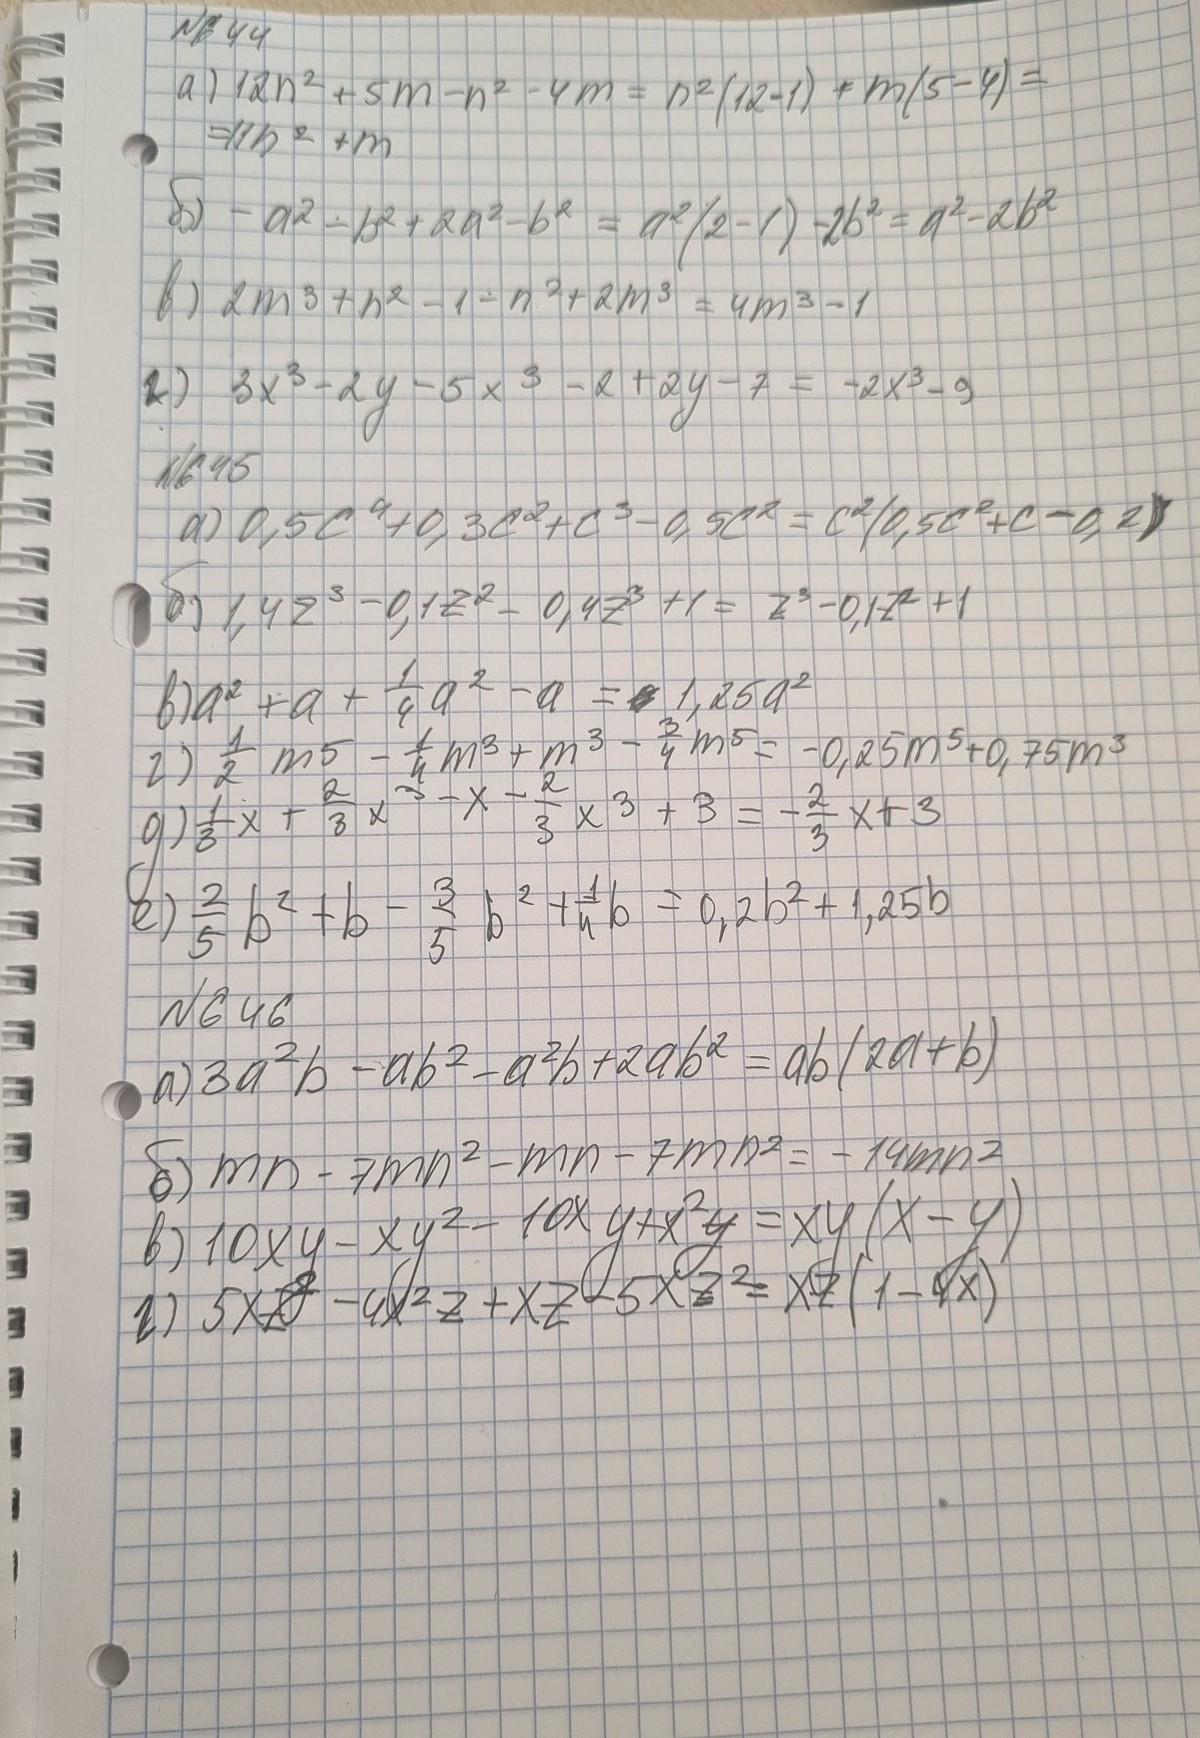 №644
а) 12n² + 5m - n² - 4m = n²(12-1) + m(5-4) =
= 11n² + m
б) - a² - b² + 2a² - b² = a²(2-1) - 2b² = a² - 2b²
в) 2m³ + n² - 1 - n² + 2m³ = 4m³ - 1
г) 3x³ - 2y - 5x³ - 2 + 2y - 7 = -2x³ - 9
№645
а) 0,5c⁴ + 0,3c² + c³ - 0,5c² = c²(0,5c² + c - 0,2)
б) 1,4z³ - 0,1z² - 0,4z³ + 1 = z³ - 0,1z² + 1
в) a² + a + 1/4 a² - a = 1,25a²
г) 1/2 m⁵ - 1/4 m³ + m³ - 3/4 m⁵ = -0,25m⁵ + 0,75m³
д) 1/3 x + 2/3 x³ - x - 2/3 x³ + 3 = - 2/3 x + 3
е) 2/5 b² + b - 3/5 b² + 1/4 b = 0,2b² + 1,25b
№646
а) 3a²b - ab² - a²b + 2ab² = ab(2a + b)
б) mn - 7mn² - mn - 7mn² = - 14mn²
в) 10xy - xy² - 10xy + x²y = xy(x - y)
г) 5xz² - 4x²z + xz - 5xz² = xz(1 - 4x)